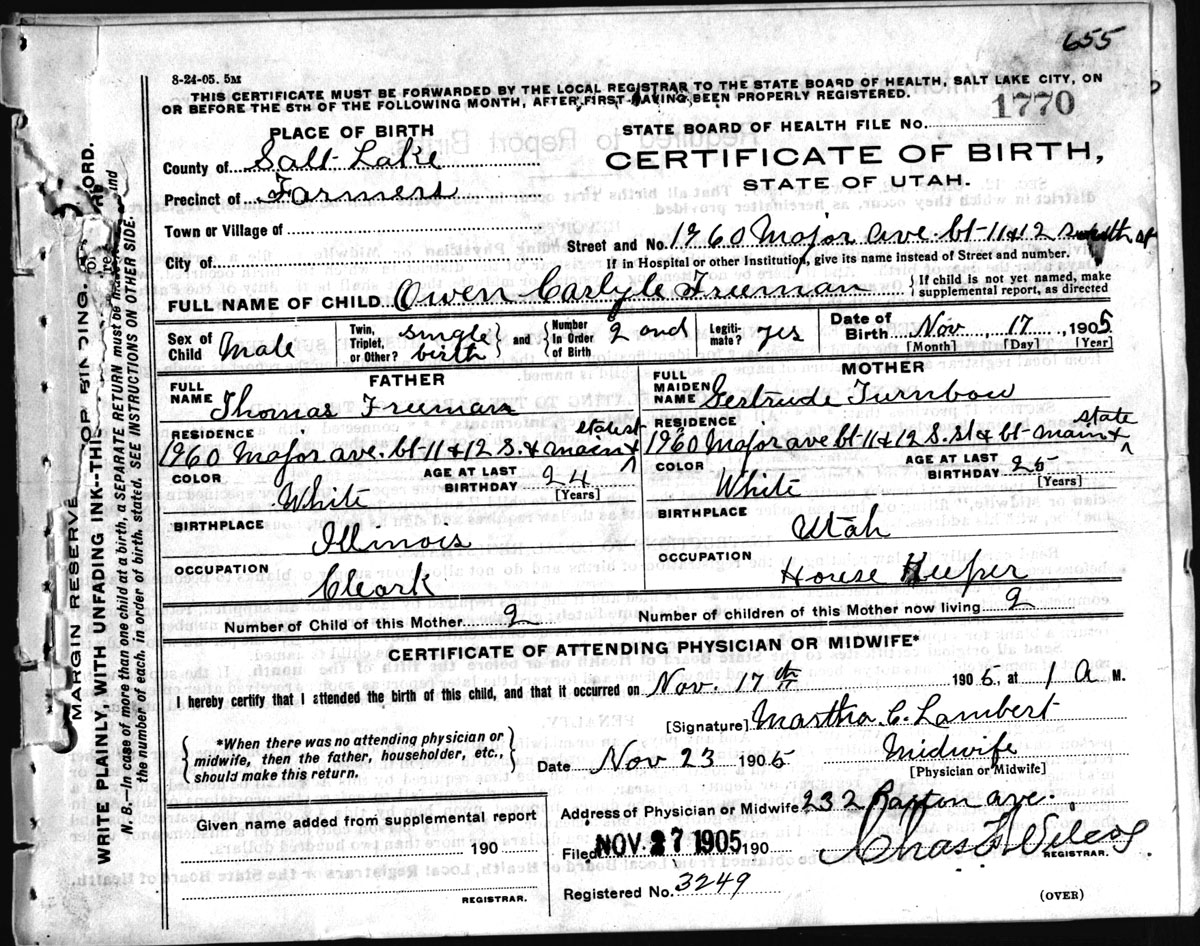 655
8-24-05. 5M
THIS CERTIFICATE MUST BE FORWARDED BY THE LOCAL REGISTRAR TO THE STATE BOARD OF HEALTH, SALT LAKE CITY, ON
OR BEFORE THE 5TH OF THE FOLLOWING MONTH, AFTER FIRST HAVING BEEN PROPERLY REGISTERED.
1770
PLACE OF BIRTH
STATE BOARD OF HEALTH FILE No.
County of Salt Lake
CERTIFICATE OF BIRTH,
Precinct of Farmers
STATE OF UTAH.
Town or Village of
Street and No. 1960 Major ave. bt-11 & 12 south st
City of
If in Hospital or other Institution, give its name instead of Street and number.
FULL NAME OF CHILD Owen Carlyle Freeman
If child is not yet named, make
supplemental report, as directed
Sex of Child Male
Twin, Triplet, or Other? single birth
and
Number In Order of Birth 2 ond
Legiti-mate? yes
Date of Birth Nov 17, 1905
[Month] [Day] [Year]
FATHER
FULL NAME Thomas Freeman
RESIDENCE state st
1960 Major ave. bt-11 & 12 S. & main &
COLOR White
AGE AT LAST BIRTHDAY 24
[Years]
BIRTHPLACE
Illinois
OCCUPATION
Cleark
MOTHER
FULL MAIDEN NAME Gertrude Turnbow
RESIDENCE state
1960 Major ave. bt-11 & 12 S. st & bt-main &
COLOR White
AGE AT LAST BIRTHDAY 25
[Years]
BIRTHPLACE
Utah
OCCUPATION
House Keeper
Number of Child of this Mother 2
Number of children of this Mother now living 2
CERTIFICATE OF ATTENDING PHYSICIAN OR MIDWIFE*
I hereby certify that I attended the birth of this child, and that it occurred on Nov. 17 th 1905, at 1 A M.
[Signature] Martha C. Lambert
*When there was no attending physician or
midwife, then the father, householder, etc.,
should make this return.
Date Nov 23 1905
Midwife
[Physician or Midwife]
Address of Physician or Midwife 232 ave.
Given name added from supplemental report
190
REGISTRAR.
Filed NOV 27 1905 190
Chas F Wilcox
REGISTRAR.
Registered No. 3249
(OVER)
MARGIN RESERVE FOR BINDING
WRITE PLAINLY, WITH UNFADING INK--THIS
N. B.--In case of more than one child at a birth, a SEPARATE RETURN must be made and
the number of each, in order of birth, stated. SEE INSTRUCTIONS ON OTHER SIDE.